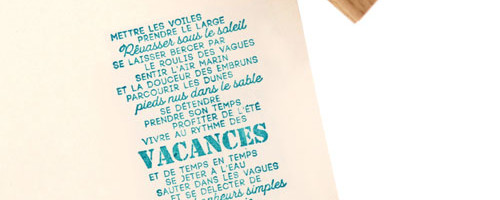 METTRE LES VOILES
PRENDRE LE LARGE
Rêvasser sous le soleil
SE LAISSER BERCER PAR
LE ROULIS DES VAGUES
SENTIR L'AIR MARIN
ET LA DOUCEUR DES EMBRUNS
PARCOURIR LES DUNES
pieds nus dans le sable
SE DÉTENDRE
PRENDRE SON TEMPS
PROFITER DE L'ÉTÉ
VIVRE AU RYTHME DES
VACANCES
ET DE TEMPS EN TEMPS
SE JETER À L'EAU
SAUTER DANS LES VAGUES
ET SE DÉLECTER DE
simples